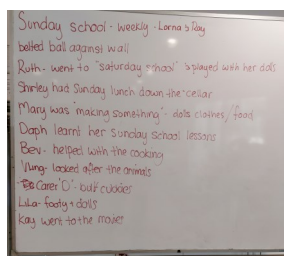 Sunday school - weekly - Lorna & Ray
belted ball against wall
Ruth - went to "saturday school" & played with her dolls
Shirley had Sunday lunch down the cellar
Mary was "making something" - dolls clothes/food
Daph learnt her Sunday School lessons
Bev - helped with the cooking
looked after the animals
Carer "O" - built cubbies
Lila - footy & dolls
Kay went to the movies